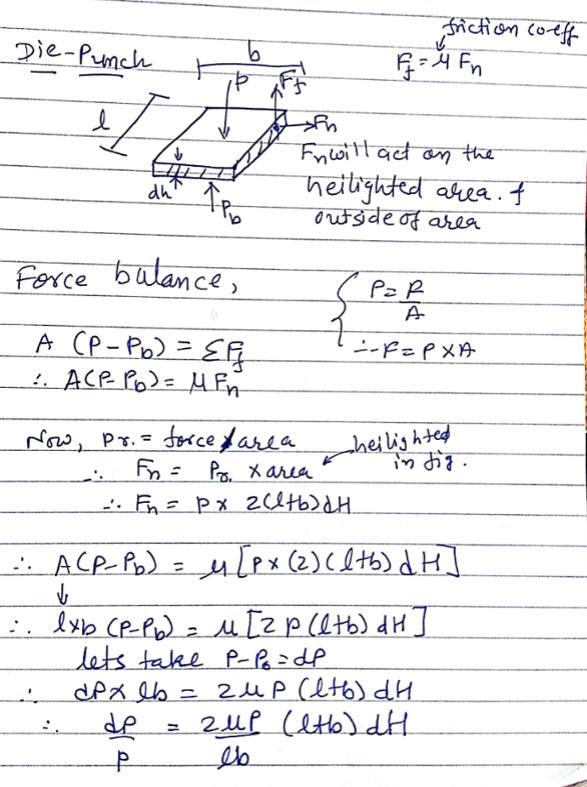 friction co-eff
Die-Punch
b
F_f = μ F_n
P
F_f
l
F_n
F_n will act on the
heilighted area. &
outside of area
dh
P_b
Force balance,
P = F/A
A (P - P_b) = Σ F_f
∴ F = P × A
∴ A(P - P_b) = μ F_n
Now, Pr. = force / area
heilighted
in fig.
∴ F_n = Pr. × area
∴ F_n = P × 2(l+b)dH
∴ A(P - P_b) = μ [P × (2) (l+b) dH]
∴ l×b (P - P_b) = μ [2 P (l+b) dH]
lets take P - P_b = dP
∴ dP × lb = 2 μ P (l+b) dH
∴ dP/P = 2μP/lb (l+b) dH